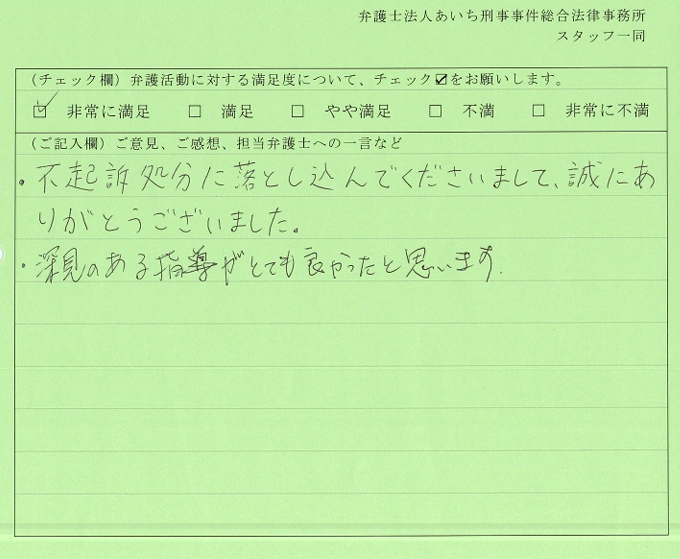 弁護士法人あいち刑事事件総合法律事務所
スタッフ一同
（チェック欄）弁護活動に対する満足度について、チェック☑をお願いします。
☑ 非常に満足 □ 満足 □ やや満足 □ 不満 □ 非常に不満
（ご記入欄）ご意見、ご感想、担当弁護士への一言など
・不起訴処分に落とし込んでくださいまして、誠にあ
りがとうございました。
・深見のある指導がとても良かったと思います.